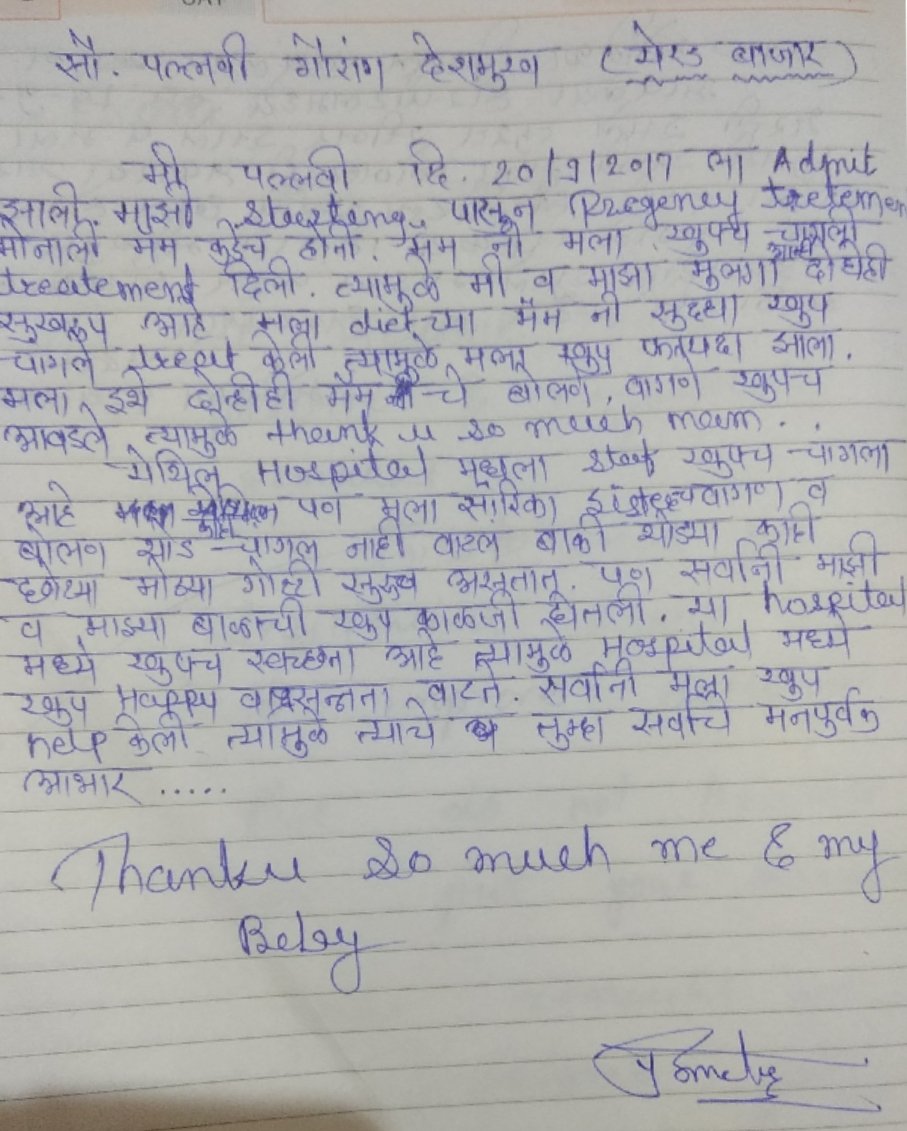 सौ. पल्लवी गौरांग देशमुख (सेरड बाजार)
मी पल्लवी दि. 20/9/2017 ला Admit
झाली. माझी starting पासून Pregency tretemen
मोनाली मॅम कडेच होती. मॅम नी मला खुपच चांगली
treatement दिली. त्यामुळे मी व माझा मुलगा दोघेही
सुखरूप आहे मला diet च्या मॅम नी सुद्धा खुप
चागले treat केले त्यामुळे मला खुप फायदा झाला.
मला इथे दोन्हीही मॅम चे बोलणे, वागणे खुपच
आवडले, त्यामुळे thank u so much mam . .
येथिल Hospital मधला staf खुपच चागला
आहे पण मला सारिका वागण व
बोलण थोड चागल नाही वाटल बाकी थोड्या काही
छोट्या मोठ्या गोष्टी असतात. पण सर्वांनी माझी
व माझ्या बाळाची खुप काळजी घेतली. या hospital
मध्ये खुपच स्वच्छता आहे त्यामुळे Hospital मध्ये
खुप Happy वाटते. सर्वांनी मला खुप
help केली त्यामुळे त्याचे तुम्हा सर्वाचे मनपुर्वक
आभार .....
Thanku so much me & my
Beby